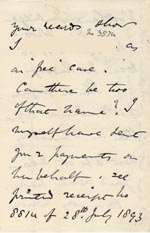 your records show
No 3574
I as
as "free" case.
Can there be two
of that name? I
myself have sent
your payments on
her behalf. see
printed receipt No
8814 of 28th July 1893